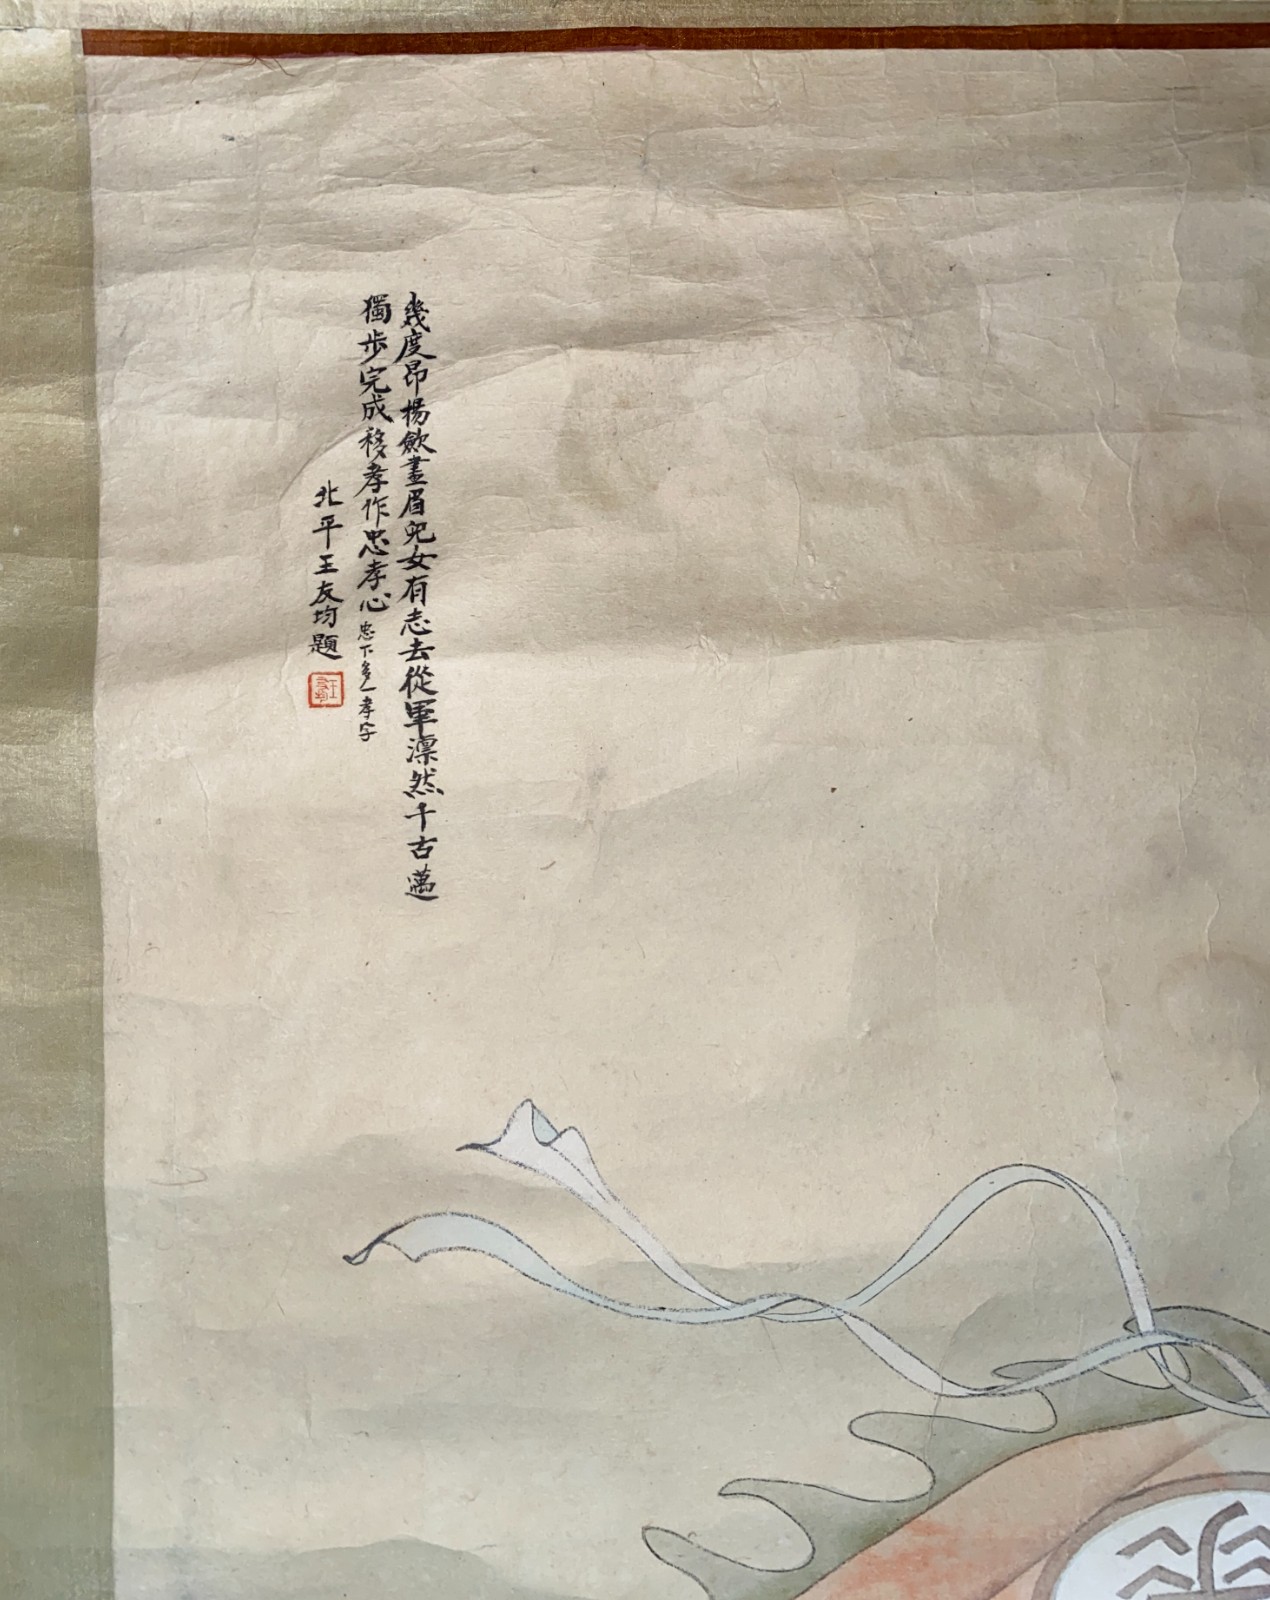 幾度昂揚歛畫眉兒女有志去從軍凛然千古邁
獨步完成移孝作忠孝心忠下多一孝字
北平王友均題